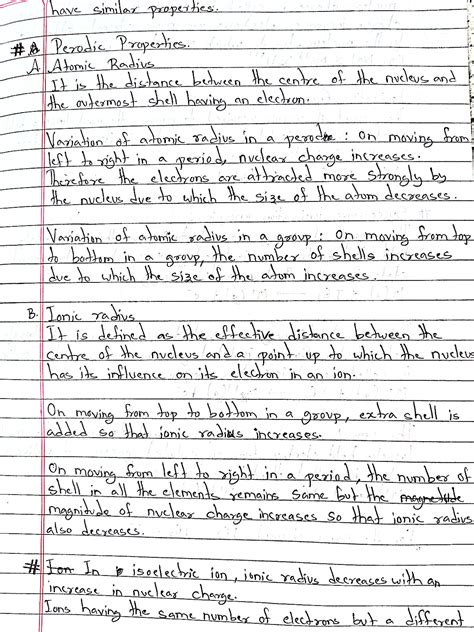 have similar properties.
# Perodic Properties.
A Atomic Radius
It is the distance between the centre of the nucleus and
the outermost shell having an electron.
Variation of atomic radius in a perode : On moving from
left to right in a period, nuclear charge increases.
Therefore the electrons are attracted more strongly by
the nucleus due to which the size of the atom decreases.
Variation of atomic radius in a group : On moving from top
to bottom in a group, the number of shells increases
due to which the size of the atom increases.
B. Ionic radius
It is defined as the effective distance between the
centre of the nucleus and a point up to which the nucleus
has its influence on its electron in an ion.
On moving from top to bottom in a group, extra shell is
added so that ionic radius increases.
On moving from left to right in a period, the number of
shell in all the elements remains same but the
magnitude of nuclear charge increases so that ionic radius
also decreases.
# In isoelectric ion, ionic radius decreases with an
increase in nuclear charge.
Ions having the same number of electrons but a different